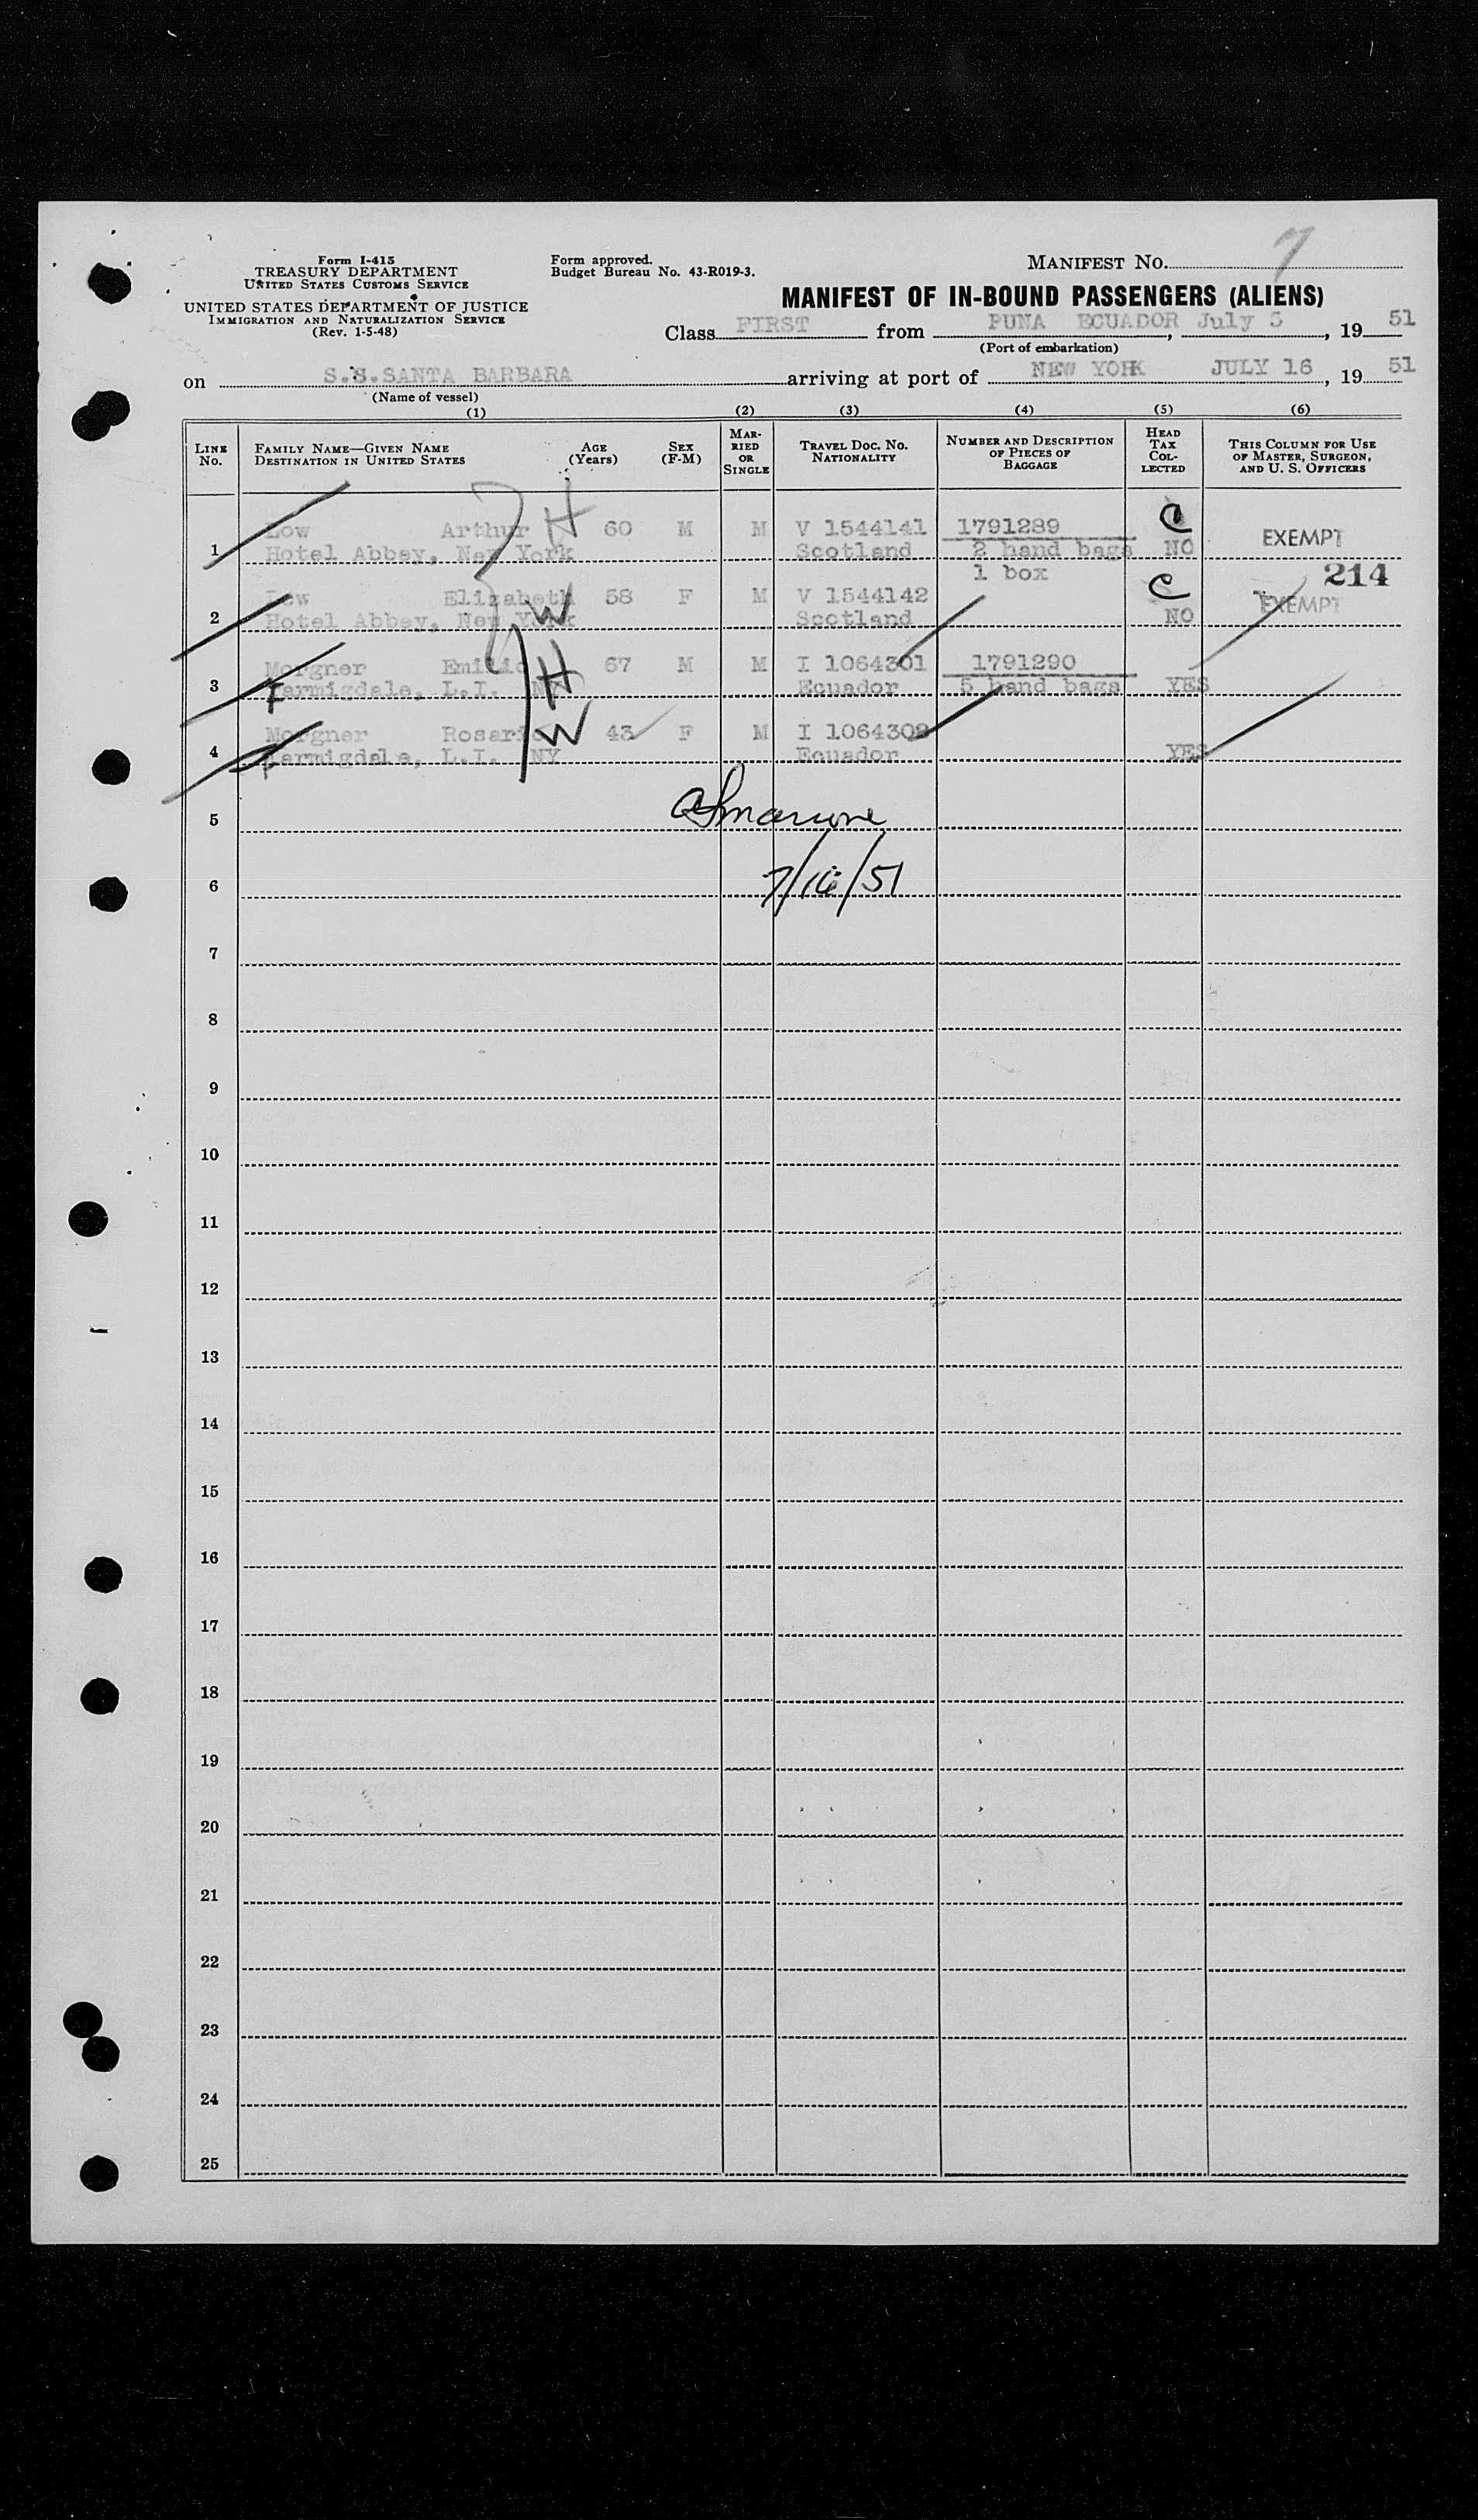 Form I-415
TREASURY DEPARTMENT
UNITED STATES CUSTOMS SERVICE
UNITED STATES DEPARTMENT OF JUSTICE
IMMIGRATION AND NATURALIZATION SERVICE
(Rev. 1-5-48)
Form approved.
Budget Bureau No. 43-R019-3.
MANIFEST NO. 7
MANIFEST OF IN-BOUND PASSENGERS (ALIENS)
Class FIRST from PUNA ECUADOR, July 5, 19 51
(Port of embarkation)
on S.S.SANTA BARBARA arriving at port of NEW YORK JULY 16, 19 51
(Name of vessel)
(1) (2) (3) (4) (5) (6)
LINE NO. FAMILY NAME—GIVEN NAME DESTINATION IN UNITED STATES AGE (Years) SEX (F-M) MARRIED OR SINGLE TRAVEL DOC. NO. NATIONALITY NUMBER AND DESCRIPTION OF PIECES OF BAGGAGE HEAD TAX COLLECTED THIS COLUMN FOR USE OF MASTER, SURGEON, AND U. S. OFFICERS
Low Arthur H 60 M M V 1544141 1791289 C EXEMPT
1 Hotel Abbey, New York Scotland 2 hand bags NO
1 box 214
Low Elizabeth W 58 F M V 1544142 C EXEMPT
2 Hotel Abbey, New York Scotland NO
Morgner Emilio H 67 M M I 1064301 1791290
3 Farmigdale, L.I. NY Ecuador 5 hand bags YES
Morgner Rosario W 43 F M I 1064302
4 Farmigdale, L.I. NY Ecuador YES
5
6 7/16/51
7
8
9
10
11
12
13
14
15
16
17
18
19
20
21
22
23
24
25